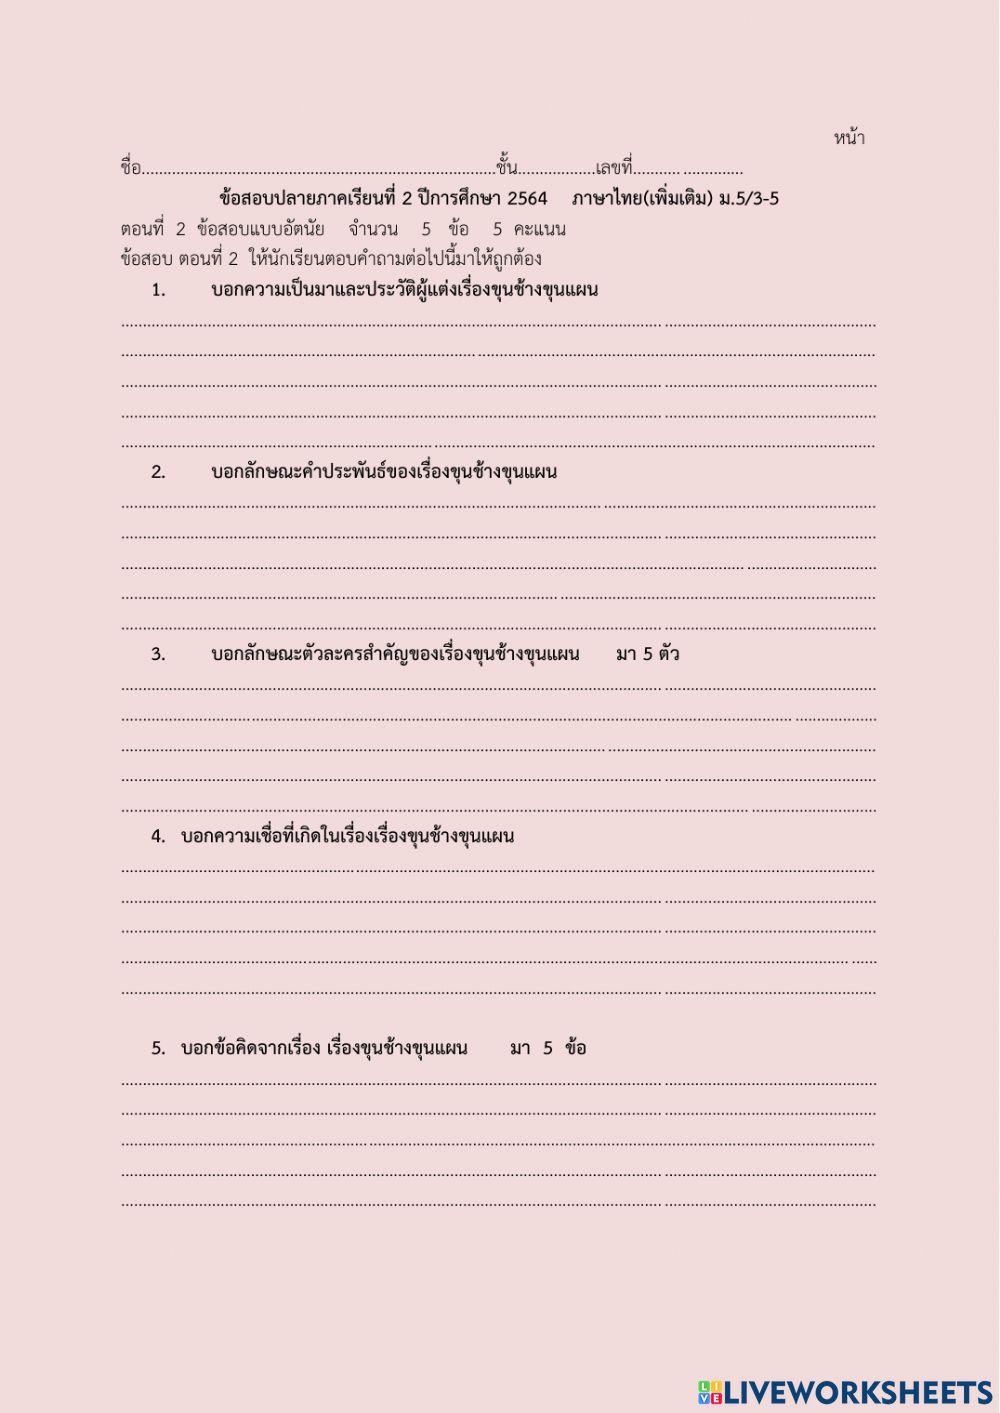 หน้า
ชื่อ..................................................................................ชั้น..................เลขที่........... ..............
ข้อสอบปลายภาคเรียนที่ 2 ปีการศึกษา 2564 ภาษาไทย(เพิ่มเติม) ม.5/3-5
ตอนที่ 2 ข้อสอบแบบอัตนัย จำนวน 5 ข้อ 5 คะแนน
ข้อสอบ ตอนที่ 2 ให้นักเรียนตอบคำถามต่อไปนี้มาให้ถูกต้อง
1. บอกความเป็นมาและประวัติผู้แต่งเรื่องขุนช้างขุนแผน
2. บอกลักษณะคำประพันธ์ของเรื่องขุนช้างขุนแผน
3. บอกลักษณะตัวละครสำคัญของเรื่องขุนช้างขุนแผน มา 5 ตัว
4. บอกความเชื่อที่เกิดในเรื่องเรื่องขุนช้างขุนแผน
5. บอกข้อคิดจากเรื่อง เรื่องขุนช้างขุนแผน มา 5 ข้อ
LIVEWORKSHEETS